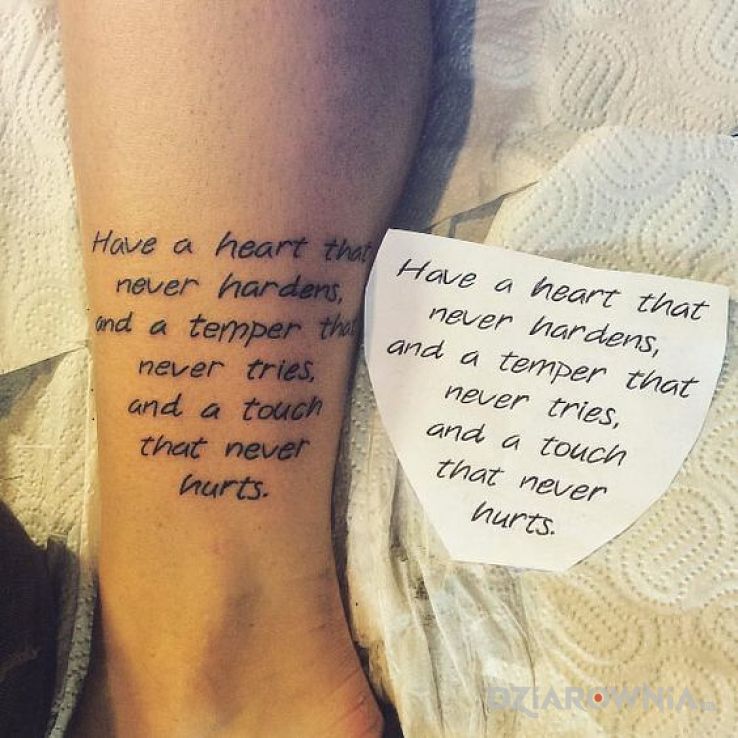 Have a heart that
never hardens,
and a temper that
never tries,
and a touch
that never
hurts.
Have a heart that
never hardens,
and a temper that
never tries,
and a touch
that never
hurts.
DZIAROWNIA.PL